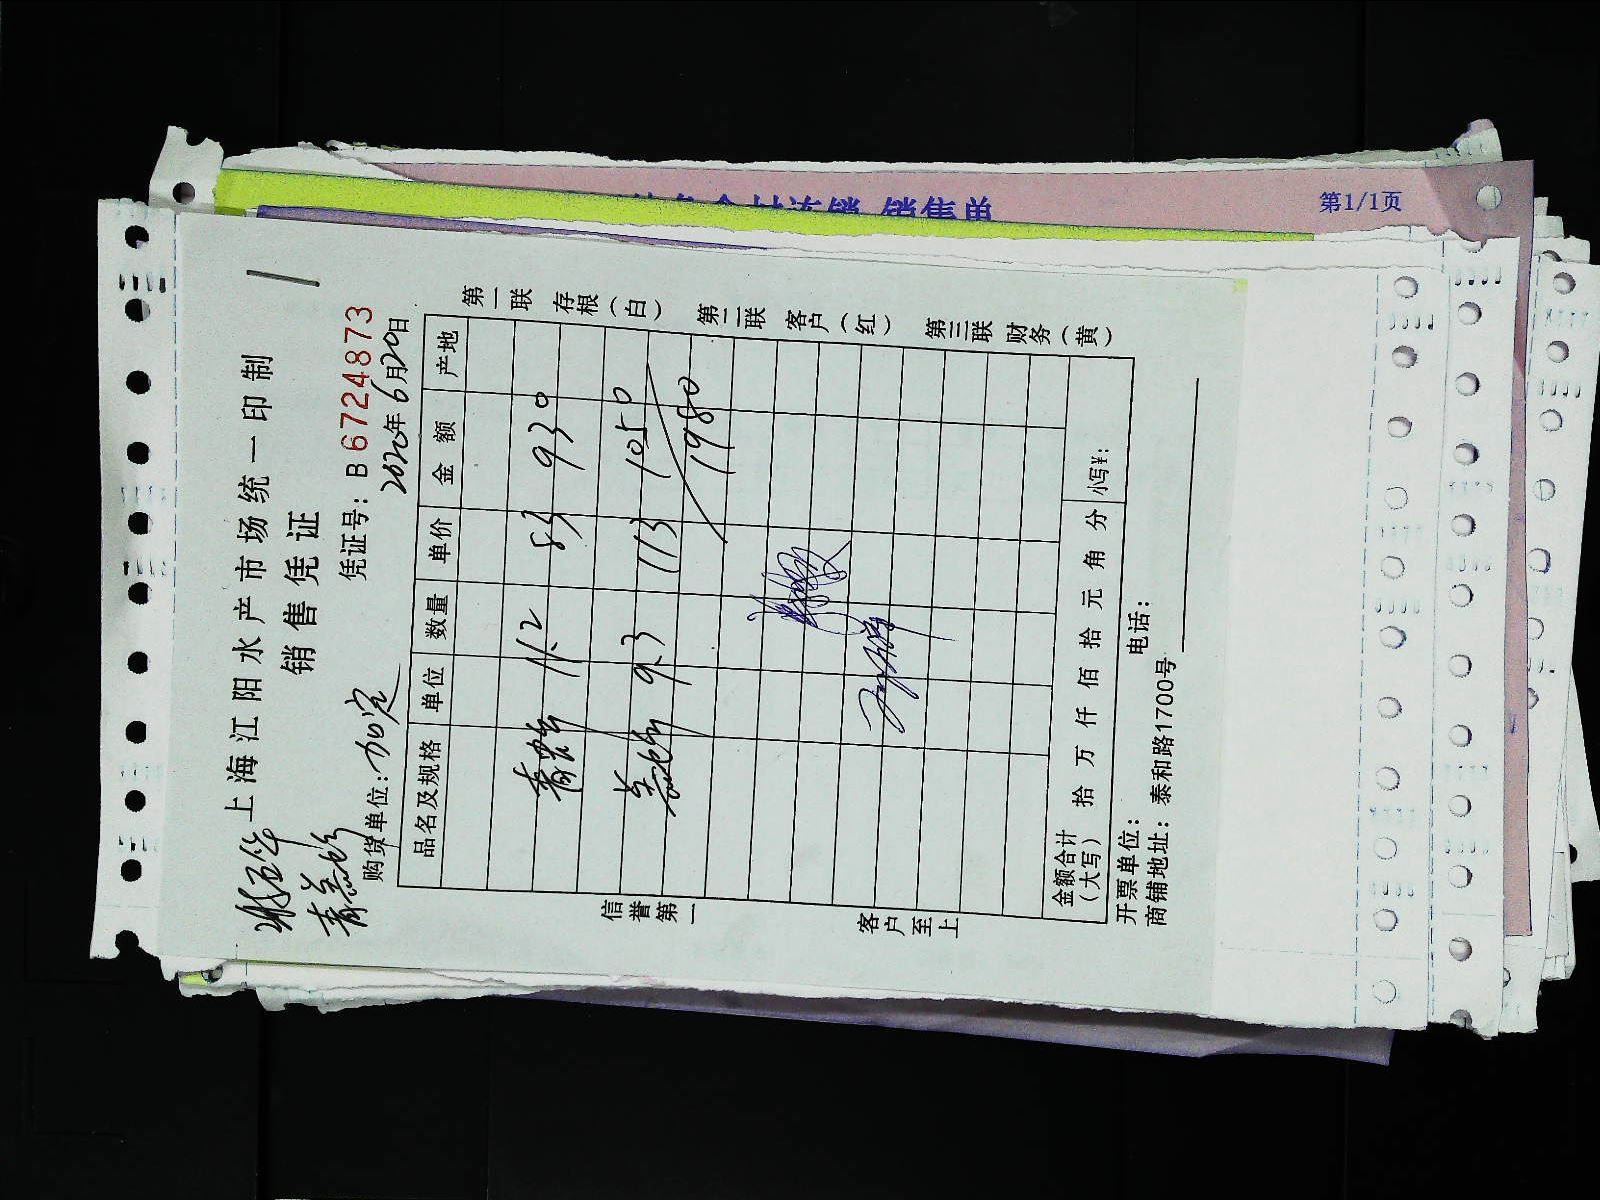 第1/1页
上海江阳水产市场统一印制
销售凭证
凭证号：B6724873
2020年6月20日
购货单位：加定
品名及规格 单位 数量 单价 金额 产地
11.2 83 930
9.3 113 1050
1980
金额合计（大写） 拾 万 仟 佰 拾 元 角 分 小写¥：
开票单位： 电话：
商铺地址：泰和路1700号
第一联 存根（白）
第二联 客户（红）
第三联 财务（黄）
信誉第一
客户至上